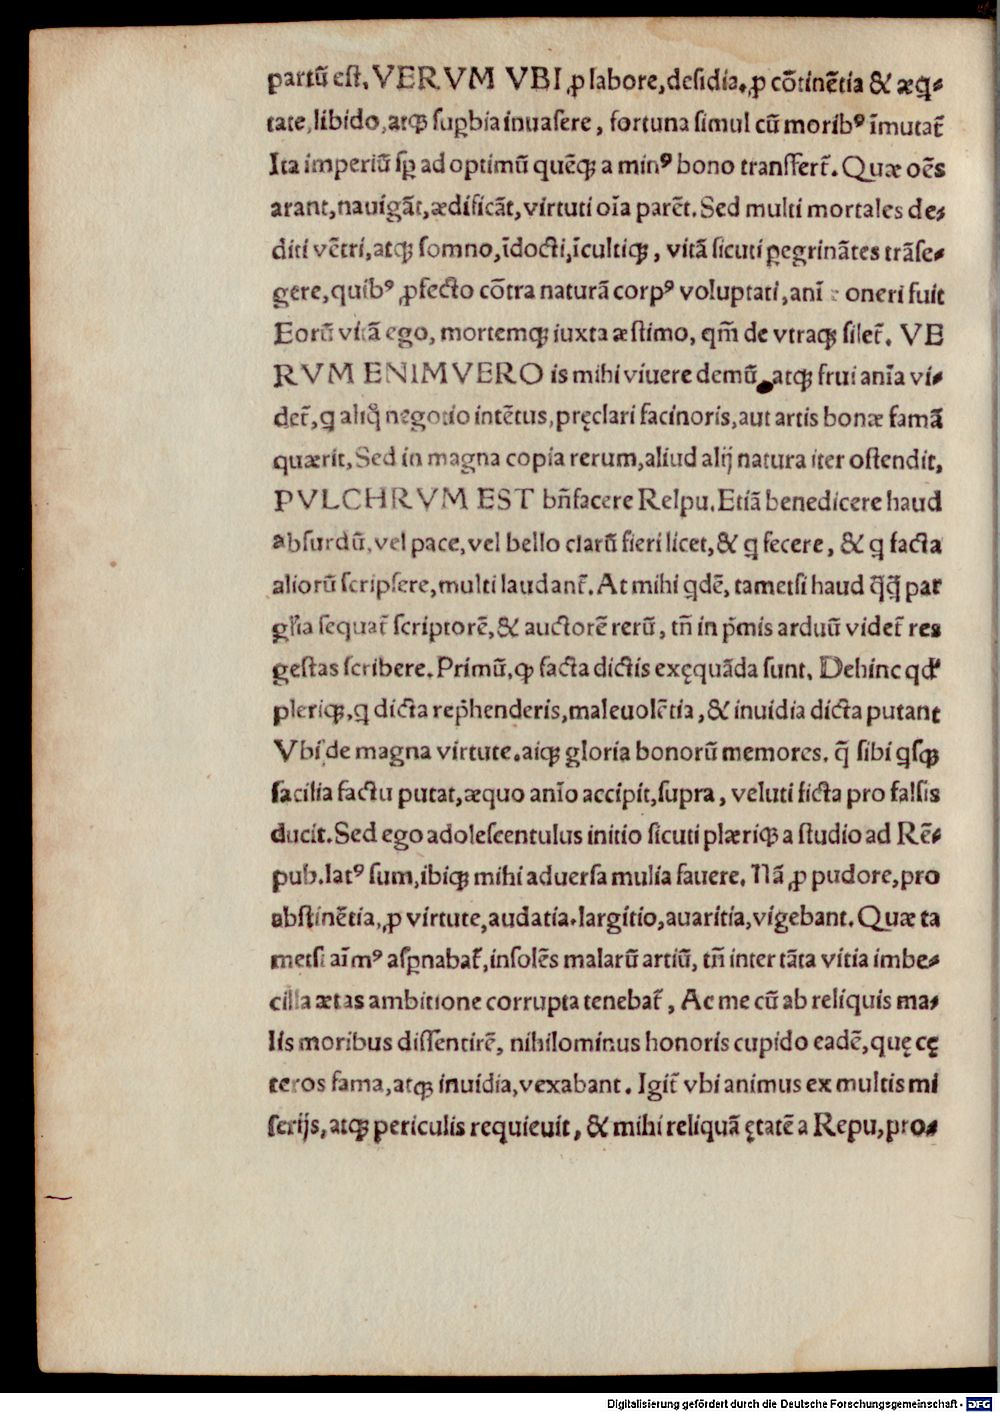 partū eſt. VERVM VBI ꝓ labore, deſidia. ꝓ cōtinētia & æꝗ⸗
tate, libido, atqꝫ ſuꝑbia inuaſere, fortuna ſimul cū moribꝰ īmutat᷑
Ita imperiū ſꝑ ad optimū quēqꝫ a minꝰ bono tranſſert᷑. Quæ oēs
arant, nauigāt, ædificāt, virtuti oīa parēt. Sed multi mortales de⸗
diti vētri, atqꝫ ſomno, īdocti, īcultiqꝫ, vitā ſicuti ꝑegrinātes trāſe⸗
gere, quibꝰ ꝓfecto cōtra naturā corpꝰ voluptati, anī oneri fuit
Eorū vitā ego, mortemqꝫ iuxta æſtimo, qm̄ de vtraqꝫ ſilet᷑. VE
RVM ENIMVERO is mihi viuere demū atqꝫ frui anīa vi⸗
det᷑, ꝗ aliqͦ negotio intētus, pręclari facinoris, aut artis bonæ famā
quærit, Sed in magna copia rerum, aliud alij natura iter oſtendit,
PVLCHRVM EST bn̄facere Reipu. Etiā benedicere haud
abſurdū, vel pace, vel bello clarū fieri licet, & ꝗ fecere, & ꝗ facta
aliorū ſcripſere, multi laudant᷑. At mihi ꝗdē, tametſi haud q̄q̄ par
gl̄ia ſequat᷑ ſcriptorē, & auctorē rerū, tn̄ in p̄mis arduū videt᷑ res
geſtas ſcribere. Primū, ꝙ facta dictis exęquāda ſunt. Dehinc qd̓
pleriqꝫ, ꝗ dicta rep̄henderis, maleuolētia, & inuidia dicta putant
Vbi de magna virtute. atqꝫ gloria bonorū memores. q̄ ſibi ꝗſqꝫ
facilia factu putat, æquo anīo accipit, ſupra, veluti ficta pro falſis
ducit. Sed ego adoleſcentulus initio ſicuti plæriqꝫ a ſtudio ad Rē⸗
pub. latꝰ ſum, ibiqꝫ mihi aduerſa multa fauere. Nā ꝓ pudore, pro
abſtinētia, ꝓ virtute, audatia. largitio, auaritia, vigebant. Quæ ta
metſi aīmꝰ aſꝑnabat᷑, inſolēs malarū artiū, tn̄ inter tāta vitia imbe⸗
cilla ætas ambitione corrupta tenebat᷑, Ac me cū ab reliquis ma⸗
lis moribus diſſentirē, nihilominus honoris cupido eadē, quę cę
teros fama, atqꝫ inuidia, vexabant. Igit᷑ vbi animus ex multis mi
ſerijs, atqꝫ periculis requieuit, & mihi reliquā ętatē a Repu, pro⸗
Digitalisierung gefördert durch die Deutsche Forschungsgemeinschaft - DFG